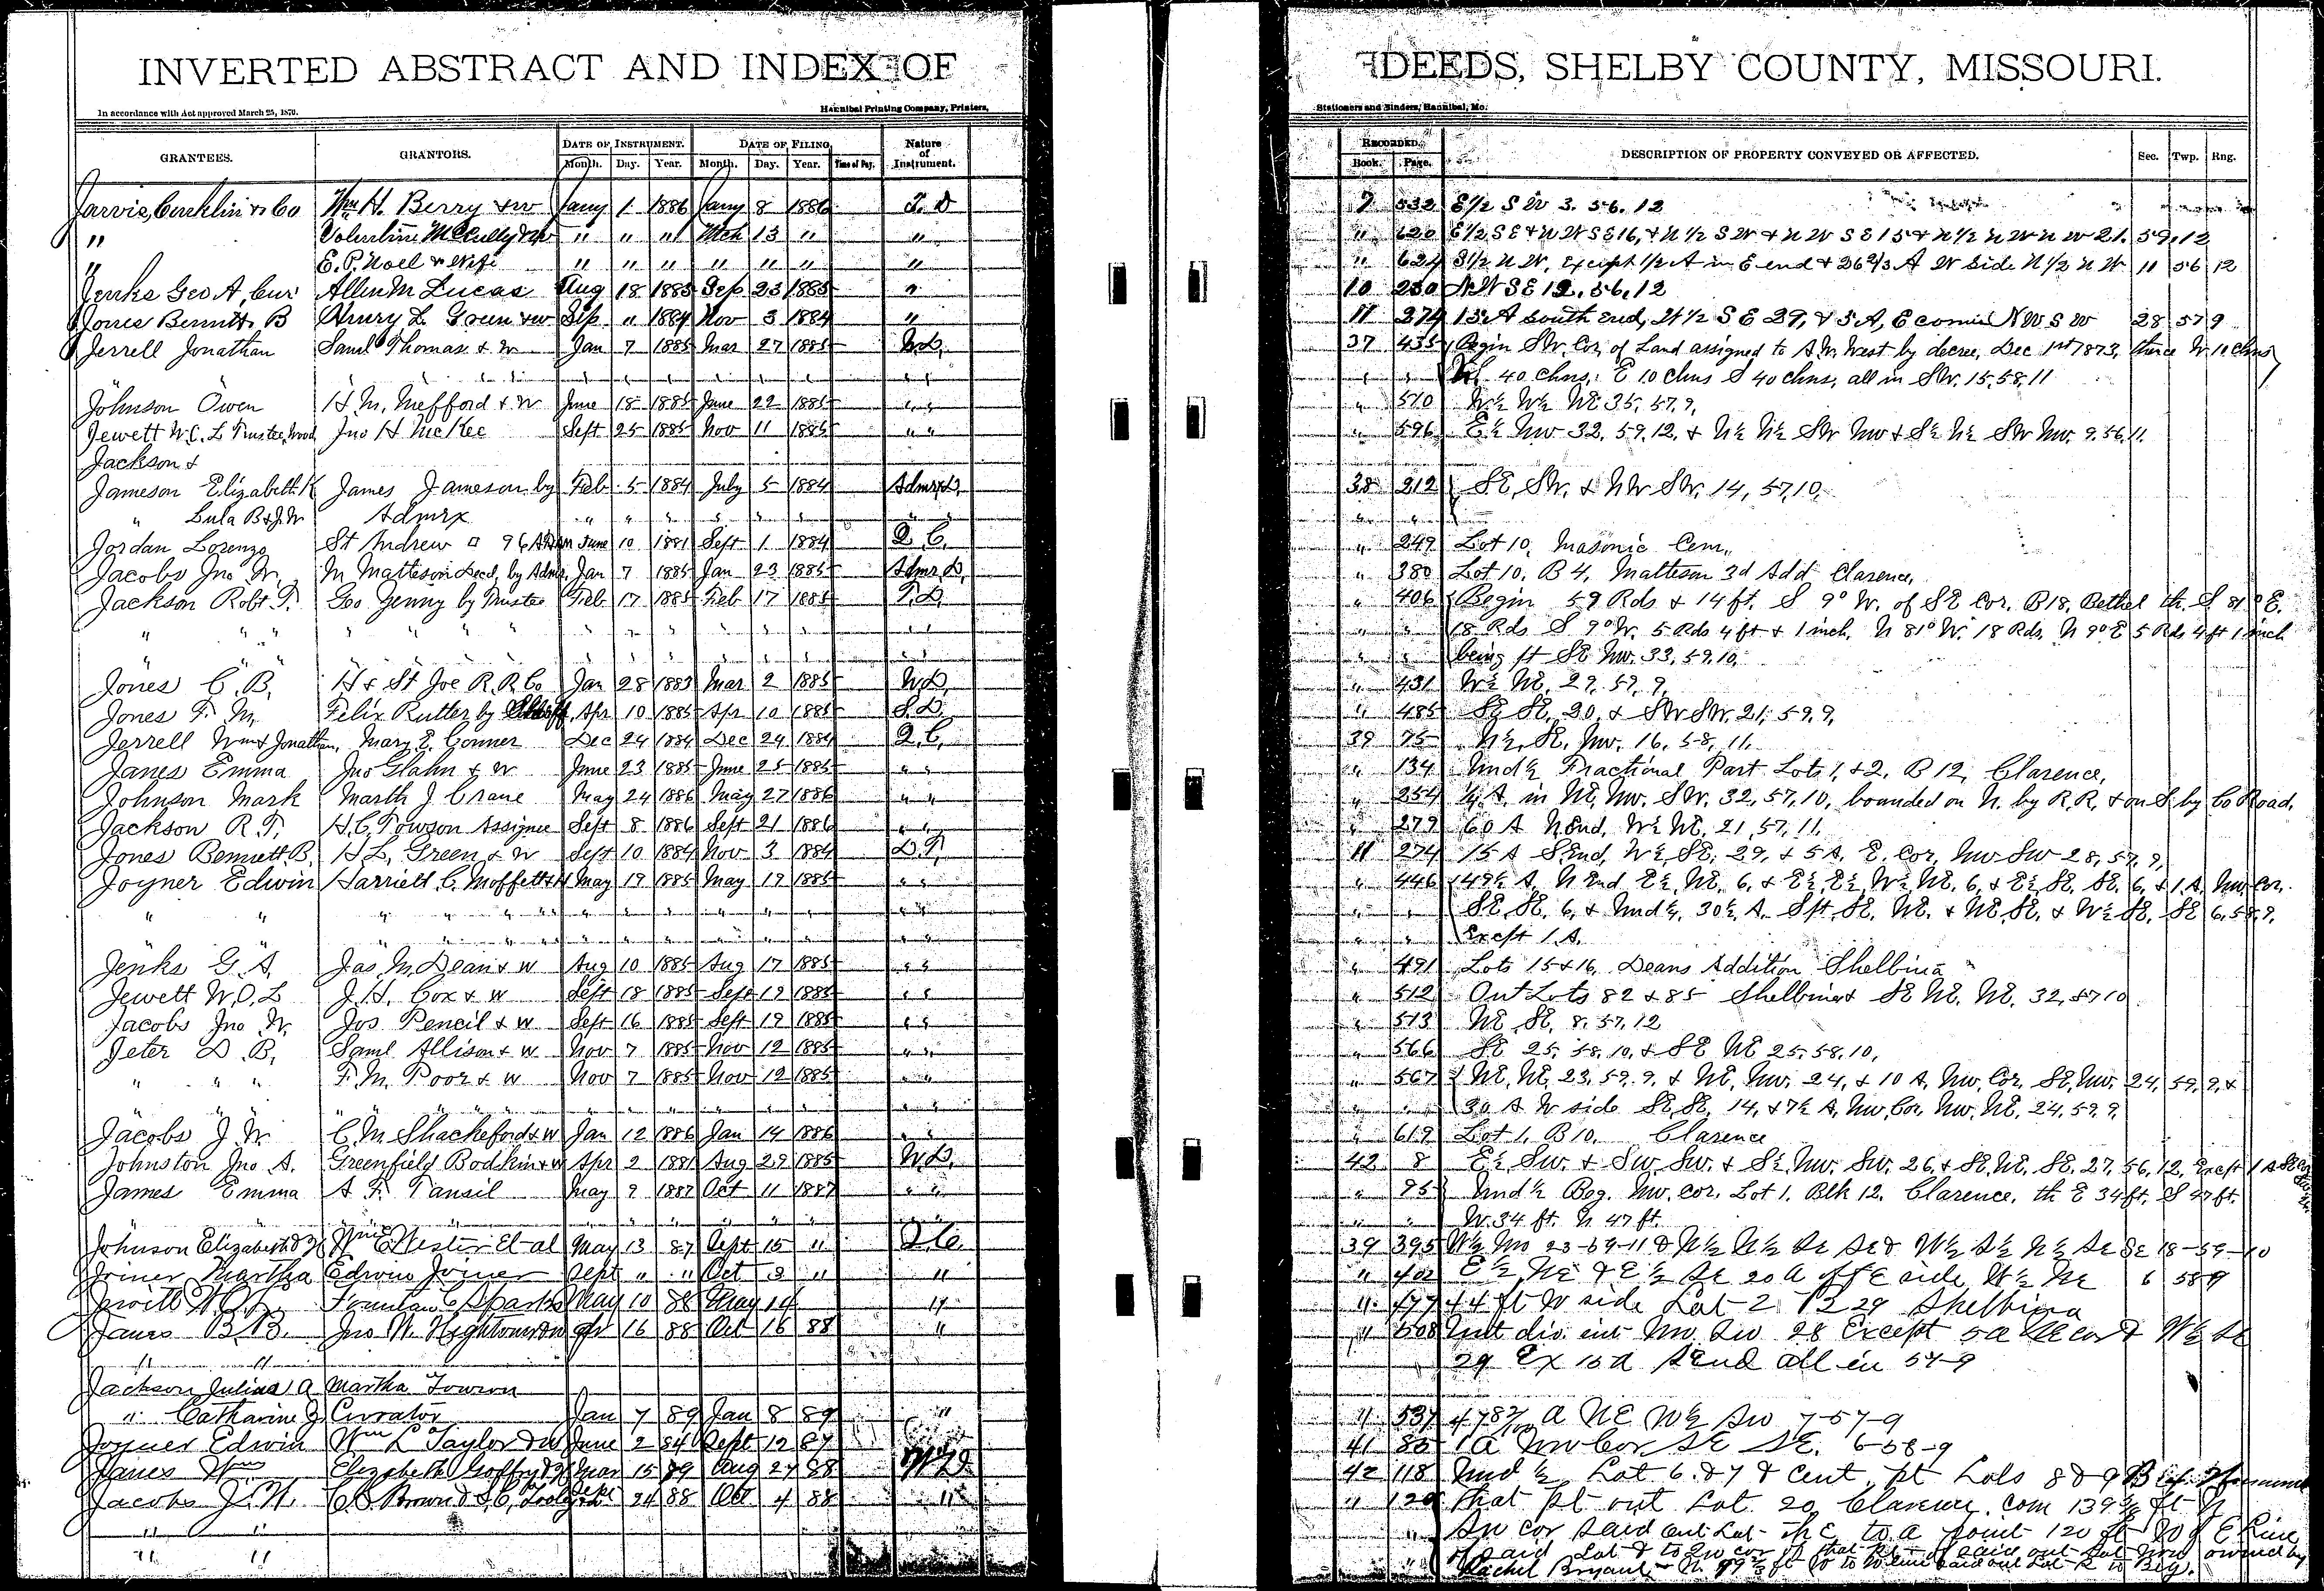 INVERTED ABSTRACT AND INDEX OF DEEDS, SHELBY COUNTY, MISSOURI.
In accordance with Act approved March 25, 1870. Hannibal Printing Company, Printers, Stationers and Binders, Hannibal, Mo.
GRANTEES. GRANTORS. DATE OF INSTRUMENT. Month. Day. Year. DATE OF FILING Month. Day. Year. Time of Day. Nature of Instrument. RECORDED. Book. Page. DESCRIPTION OF PROPERTY CONVEYED OR AFFECTED. Sec. Twp. Rng.
Jarvis, Conklin & Co Wm H. Berry & w Jany 1 1886 Jany 8 1886 T. D 9 532 E 1/2 S W 3. 56. 12
" Valentine McCully & w " " " Mch 13 " " " 620 E 1/2 S E & N W S E 16, & N 1/2 S W & N W S E 15 & N 1/2 N W N W 21. 59. 12
" E. P. Noel & Wife " " " " " " " " 624 S 1/2 N W, Except 1/2 A in E end & 26 2/3 A W Side N 1/2 N W 11 56 12
Jenks Geo A, Cur Allen M Lucas Aug 18 1885 Sep 23 1885 " 10 230 N W S E 12, 56, 12
Jones Bennett B Henry L Green & w Sep " 1884 Nov 3 1884 " 11 274 15 A South end, W 1/2 S E 29, & 5 A, E corner N W S W 28 57 9
Jerrell Jonathan Saml Thomas & W Jan 7 1885 Mar 27 1885 W.D. 37 435 Begin SW. Cor. of Land assigned to A.W. West by decree, Dec 1st 1873, thence W. 10 Chns
" " " " " " " " " " " " 40 Chns, E 10 Chns S 40 chns, all in SW. 15, 58, 11
Johnson Owen H. M. Mefford & W June 18 1885 June 22 1885 " " " 510 W½ W½ NE 35, 57, 9,
Jewett W. C. L Trustee, Wood Jno H McKee Sept 25 1885 Nov 11 1885 " " " 596 E½ NW 32, 59, 12, & N½ N½ SW NW & S½ N½ SW NW. 9, 56, 11.
Jackson &
Jameson Elizabeth K James Jameson by Feb 5 1884 July 5 1884 Admrx D. 38 212 SE, SW. & NW SW. 14, 57, 10,
" Lula B & J. W Admrx " " " " " " " " "
Jordan Lorenzo St Andrew 96 June 10 1881 Sept 1 1884 Q.C. " 249 Lot 10, Masonic Cem,
Jacobs Jno W. M Matteson Decd, by Admr. Jan 7 1885 Jan 23 1885 Admr D. " 380 Lot 10, B 4, Matteson 3d Add Clarence,
Jackson Robt T. Geo Genny by Trustee Feb 17 1885 Feb 17 1885 T.D. " 406 Begin 59 Rds & 14 ft. S 9° W. of SE Cor. B 18, Bethel th. S 81° E.
" " " " " " " " " " " " " " 18 Rds S 9° W. 5 Rds 4 ft & 1 inch, N 81° W. 18 Rds, N 9° E 5 Rds 4 ft 1 inch
" " " " " " " " " " being pt SE NW. 33, 59, 10,
Jones C. B. H & St Joe R.R. Co Jan 28 1883 Mar 2 1885 W.D. " 431 W½ NE, 29, 57, 9,
Jones F. M. Felix Rutter by Sheriff Apr 10 1885 Apr 10 1885 S.D. " 485 SE SE, 20, & SW SW. 21, 59, 9,
Jerrell Wm & Jonathan, Mary E. Conner Dec 24 1884 Dec 24 1884 Q.C. 39 75 N½, SE, NW. 16, 58, 11,
Janes Emma Jno Glahn & W June 23 1885 June 25 1885 " " " 134 Und½ Fractional Part Lots 1, & 2, B 12, Clarence,
Johnson Mark Marth J Crane May 24 1886 May 27 1886 " " " 254 ¼ A. in NE, NW. SW. 32, 57, 10, bounded on N. by R.R. & on S. by Co Road.
Jackson R. T. H. C. Towson Assignee Sept 8 1886 Sept 21 1886 " " " 279 60 A N End, W½ NE, 21, 57, 11,
Jones Bennett B. H. L. Green & W Sept 10 1884 Nov 3 1884 D.T. 11 274 15 A S End, W½ SE. 29, & 5 A, E. Cor, NW SW 28, 57, 9,
Joyner Edwin Harriett C. Moffett May 19 1885 May 19 1885 " " " 446 149½ A, N End E½, NE, 6, & E½, E½, W½ NE, 6, & E½ SE, SE. 6, & 1 A. NW, Cor.
" " " " " " " " " " " " SE, SE, 6, & Und½, 30½ A. S pt SE, NE. & NE, SE, & W½ SE. SE 6, 58, 9,
" " " " " " " " " " Except 1 A.
Jenks G. A. Jas M. Dean & w Aug 10 1885 Aug 17 1885 " " " 491 Lots 15 & 16, Deans Addition Shelbina
Jewett W. O. L J. H. Cox & w Sept 18 1885 Sept 19 1885 " " " 512 Out Lots 82 & 85 Shelbina & SE NE, NE. 32, 57 10
Jacobs Jno W. Jos Pencil & w Sept 16 1885 Sept 19 1885 " " " 513 NE SE, 8, 57, 12
Jeter D. B. Saml Allison & w Nov 7 1885 Nov 12 1885 " " " 566 SE 25, 58, 10, & SE NE 25, 58, 10,
" " " F. M. Poor & w Nov 7 1885 Nov 12 1885 " " " 567 NE, NE, 23, 59, 9, & NE, NW. 24, & 10 A, NW, Cor, SE, NW. 24, 59, 9, &
" " " " " " " " " " 30 A W side SE, SE, 14, & 7½ A, NW, Cor, NW, NE, 24, 59, 9,
Jacobs J. W. C. M. Shackeford & w Jan 12 1886 Jan 14 1886 " " " 619 Lot 1, B 10, Clarence
Johnston Jno A. Greenfield Bodkin & w Apr 2 1881 Aug 29 1885 W.D. 42 8 E½ SW. & SW SW. & S½ NW. SW. 26, & SE, NE, SE, 27, 56, 12, Except 1 A
James Emma A. F. Tansil May 9 1887 Oct 11 1887 " " " 95 Und½ Beg. NW. cor. Lot 1. Blk 12. Clarence, th E 34 ft. S 47 ft.
" " " " " " " " " " W. 34 ft. N 47 ft.
Johnson Elizabeth Wm E Hester Et al May 13 87 Sept 15 " Q.C. 39 395 W½ NW 23-59-11 & N½ N½ Se Se & W½ S½ N½ Se Se 18-59-10
Joiner Martha Edwin Joiner Sept " " Oct 3 " " " 402 E½ NE & E½ Se 20 a off E side W½ NE 6 58 9
Jewett W.O.L. Fountan C Sparks May 10 88 May 14 " " 477 44 ft W side Lot 2 B 29 Shelbina
Janes B. B. Jno W. Hightower 16 88 Oct 16 88 " " 508 Und div. int NW SW 28 Except 5a cor & W½ Se
" " 29 Ex 15a S End all in 57-9
Jackson Julius A Martha Towson
" Catharine J Currator Jan 7 89 Jan 8 89 " " 537 a NE W½ SW 7-57-9
Joyner Edwin Wm L Taylor & w June 2 84 Sept 12 87 41 85 1 a NW Cor SE SE. 6-58-9
Janes Wm Elizabeth Mar 15 Aug 27 88 W D 42 118 Und ½ Lot 6 & 7 & Cent. pt Lots 8 & 9
Jacobs J. W. C. B. Brown & 24 88 Oct 4 88 " " that pt out Lot 20 Clarence. Com 139 ft N
" " SW cor said out Lot - Th E to a point 120 ft W of E line
" " of said Lot & to SW cor of that pt of said out Lot now owned by
Rachel Bryant - N. 99 ft W to W line said out Lot S to Beg.